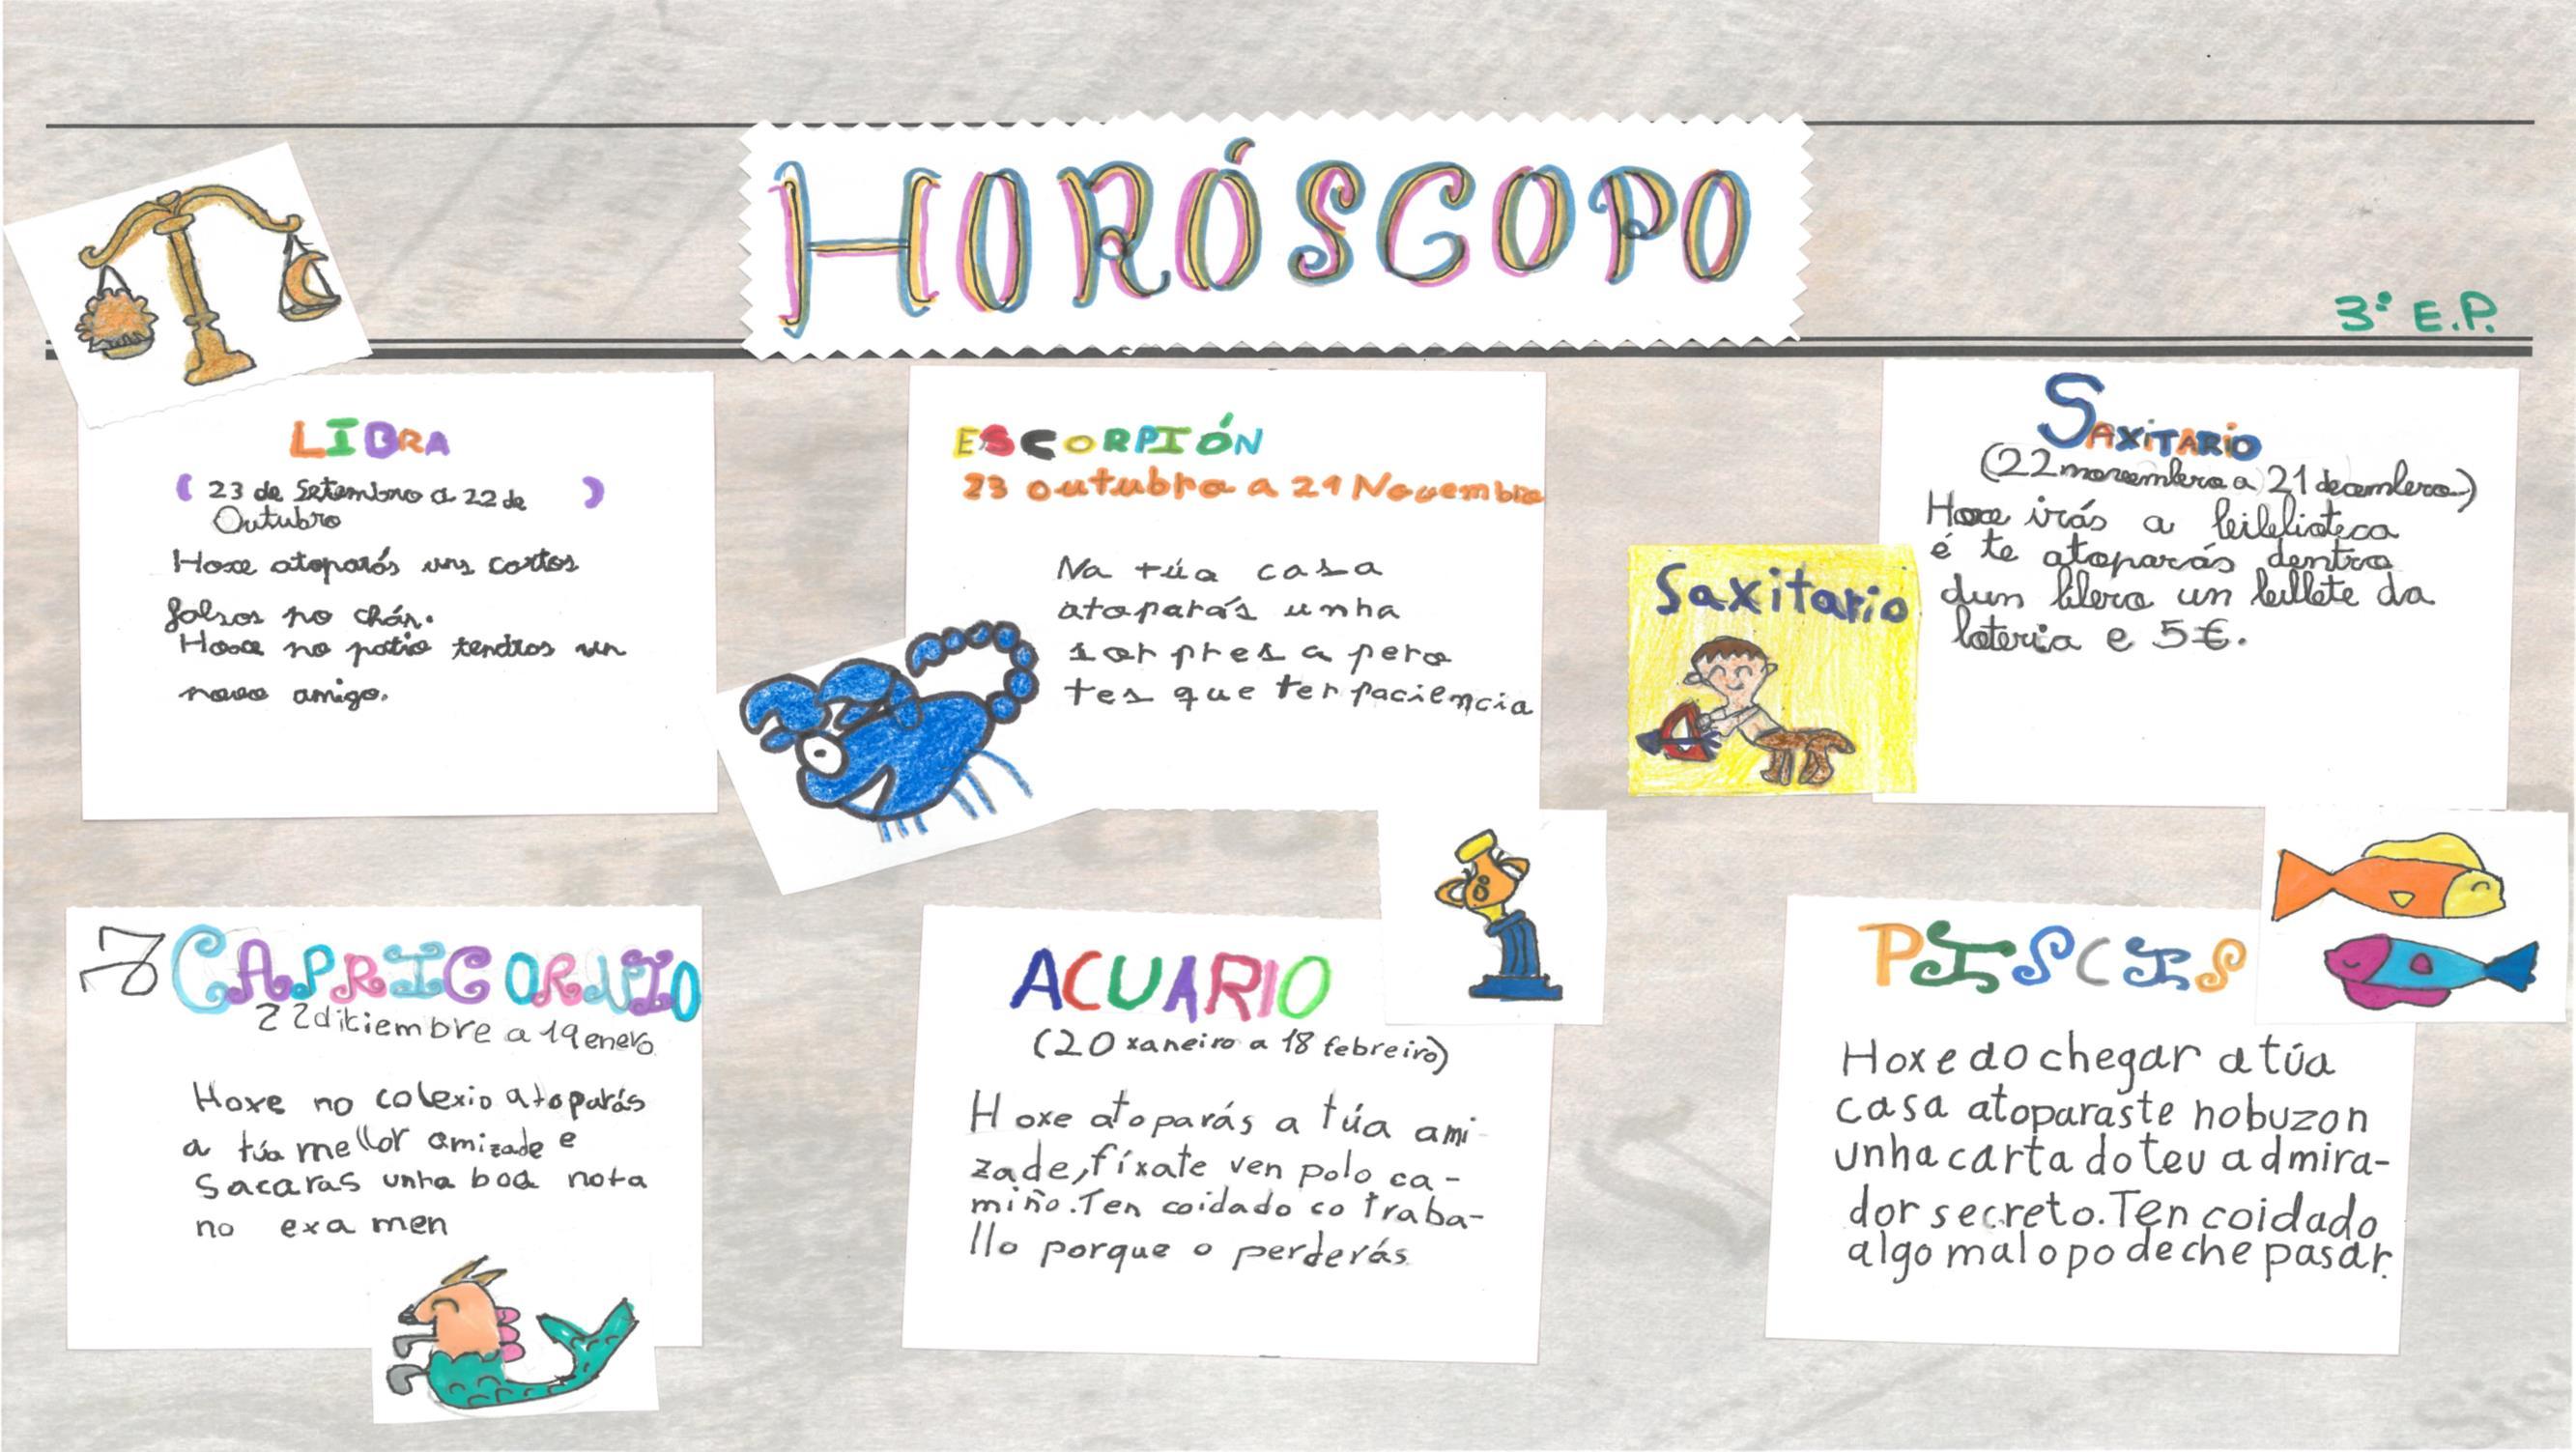 HORÓSCOPO
3º E.P.
LIBRA
( 23 de Setembro a 22 de )
Outubro
Hoxe atoparás uns cartos
falsos no chán.
Hoxe no patio tendras un
novo amigo.
ESCORPIÓN
23 outubro a 21 Novembro
Na túa casa
atoparás unha
sorpresa pero
tes que ter paciencia
SAXITARIO
(22 novembro a 21 decembro)
Hoxe irás a biblioteca
é te atoparás dentro
dun libro un billete da
loteria e 5€.
Saxitario
CAPRICORNIO
22 diciembre a 19 enero
Hoxe no colexio atoparás
a túa mellor amizade e
sacaras unha boa nota
no examen
ACUARIO
(20 xaneiro a 18 febreiro)
Hoxe atoparás a túa ami-
zade, fíxate ven polo ca-
miño. Ten coidado co traba-
llo porque o perderás
PISCIS
Hoxe do chegar a túa
casa atoparaste no buzon
unha carta do teu admira-
dor secreto. Ten coidado
algo malo pode che pasar.